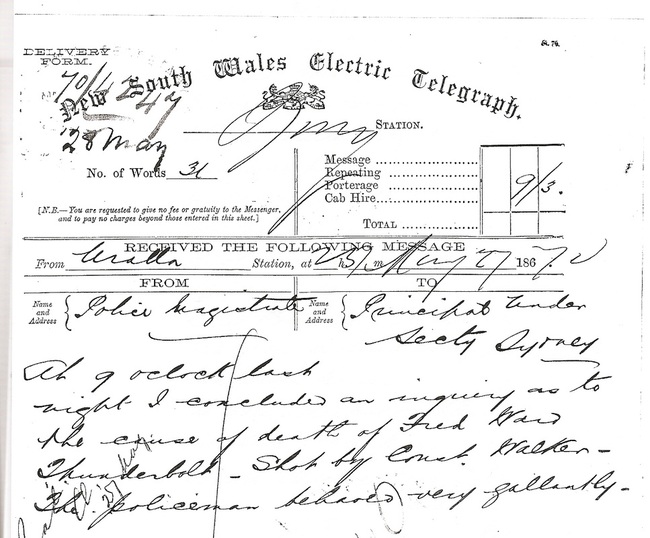 St. 76.
DELIVERY
FORM.
70/4247
New South Wales Electric Telegraph.
28 May
STATION.
No. of Words 31
Message
Repeating
Porterage
Cab Hire
9/3.
TOTAL
[N.B.—You are requested to give no fee or gratuity to the Messenger,
and to pay no charges beyond those entered in this sheet.]
RECEIVED THE FOLLOWING MESSAGE
From Uralla Station, at h. m. May 27 186
FROM
TO
Name and Address { Police Magistrate
Name and Address { Principal Under
Secty Sydney
At 9 oclock last
night I concluded an inquiry as to
the cause of death of Fred Ward
Thunderbolt - Shot by Const. Walker -
The policeman behaved very gallantly -